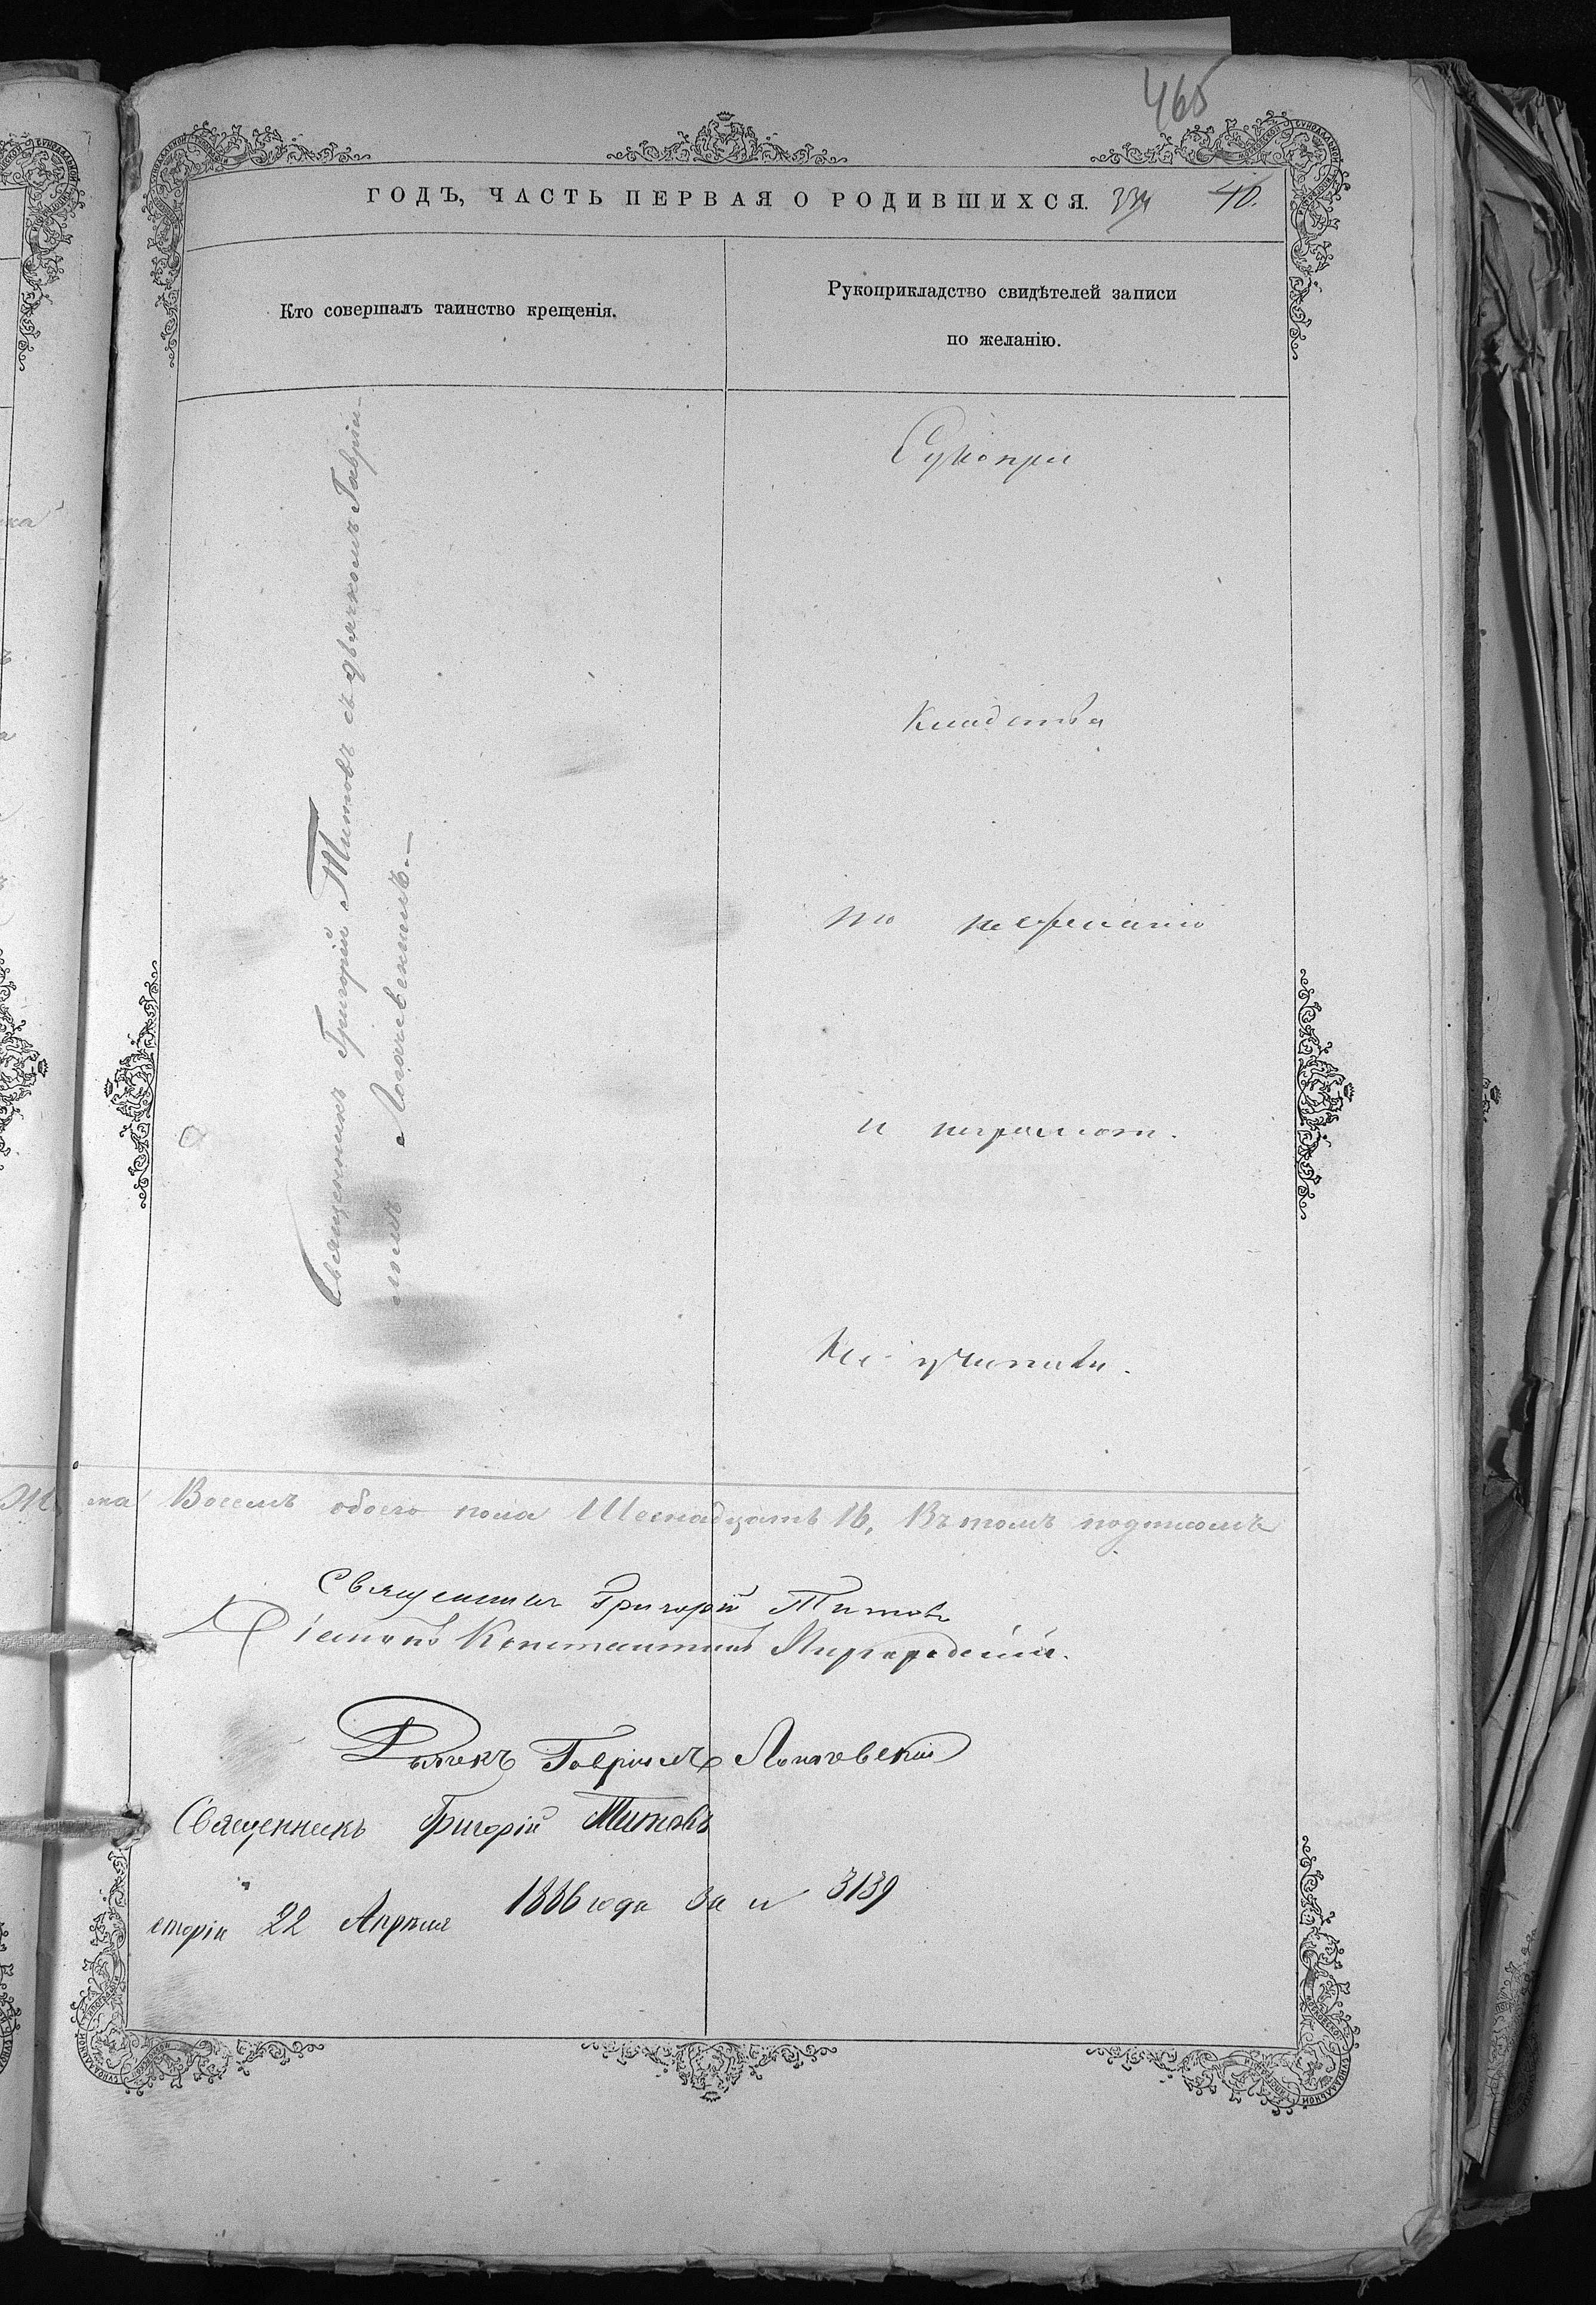 465
ГОДЪ, ЧАСТЬ ПЕРВАЯ О РОДИВШИХСЯ. 40.
Кто совершалъ таинство крещенія.
Рукоприкладство свидѣтелей записи
по желанію.
Священникъ Григорій Титовъ съ дьячкомъ Гаврiи-
ломъ
Рукопри
кладства
по нежеланію
и неграмот.
не учинили.
ма Восемъ обоего пола Шеснадцать 16, Въ томъ подписомъ
Священникъ Григорій Титовъ
Діаконъ Константинъ
Дьячекъ Гавріилъ
Священникъ Григорій Титовъ
сторіи 22 Апреля 1886 года за № 3139